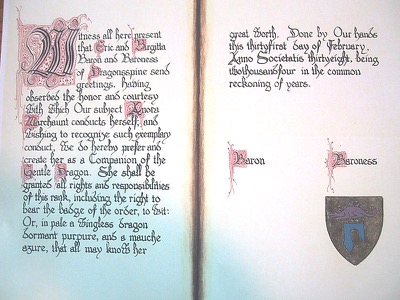 Witness all here present
that Eric and Birgitta
Baron and Baroness
of Dragonsspine send
greetings. Having
observed the honor and courtesy
with Which Our subject Lenora
Marchaunt conducts herself, and
Wishing to recognize such exemplary
conduct, We do hereby prefer and
create her as a Companion of the
Gentle Dragon. She shall be
granted all rights and responsibilities
of this rank, including the right to
bear the badge of the order, to Wit:
Or, in pale a Wingless dragon
dormant purpure, and a mauche
azure, that all may know her
great Worth. Done by Our hands
this thirtyfirst day of February,
Anno Societatis thirtyeight, being
twothousandfour in the common
reckoning of years.
Baron
Baroness